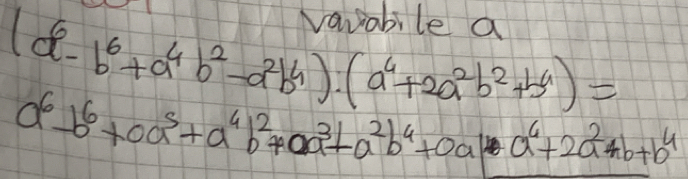 variabile a
(a⁶-b⁶+a⁴b²-a²b⁴).(a⁴+2a²b²+b⁴)=
a⁶-b⁶+0a⁵+a⁴b²+0a³-a²b⁴+0a a⁴+2a²+b+b⁴